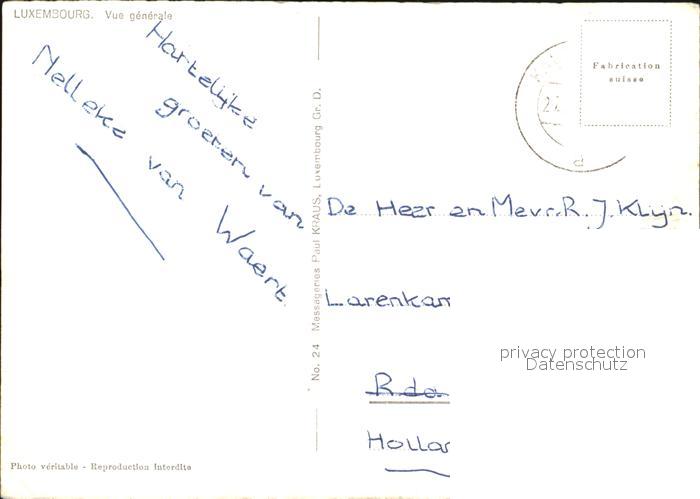 LUXEMBOURG. Vue générale
Hartelijke
groeten van
Nelleke van Waert
No. 24 Messageries Paul KRAUS, Luxembourg Gr. D.
Fabrication
suisse
De Heer en Mevr. R. J. Klijn.
Larenkam
Rda
Hollan
privacy protection
Datenschutz
Photo véritable - Reproduction Interdite